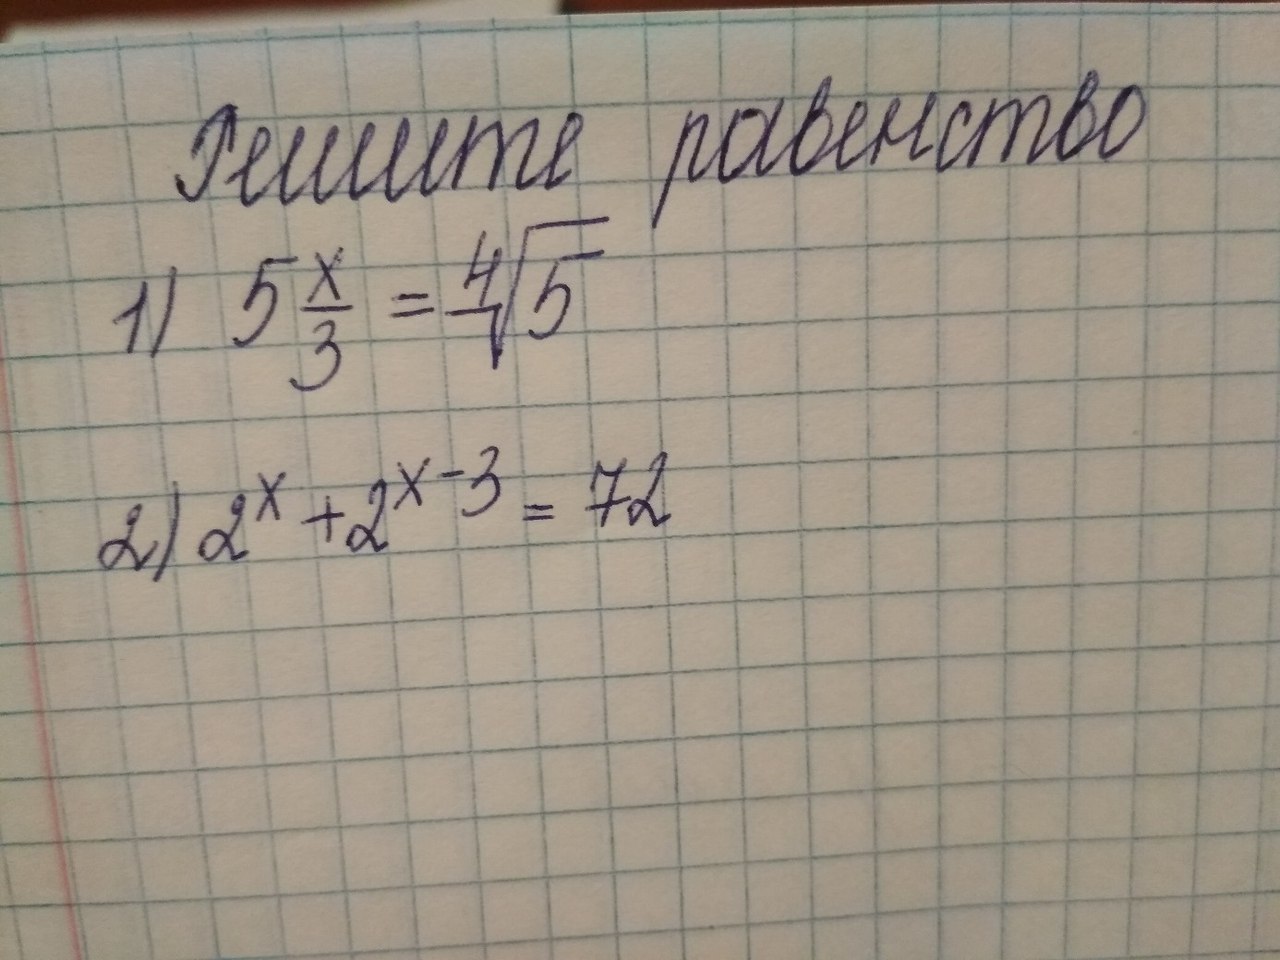 Решите равенство
1) 5 x/3 = ∜5
2) 2^x + 2^(x-3) = 72